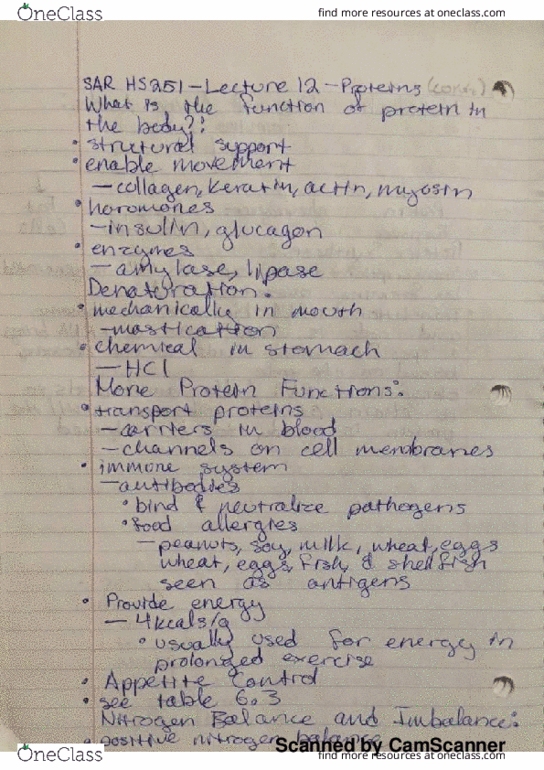 OneClass
find more resources at oneclass.com
SAR HS251 - Lecture 12 - Proteins (con.)
What is the function of protein in
the body?!
• structural support
• enable movement
- collagen, keratin, actin, myosin
• horomones
- insulin, glucagon
• enzymes
- amylase, lipase
Denaturation:
• mechanically in mouth
- mastication
• chemical in stomach
- HCl
More Protein Functions:
• transport proteins
- carriers in blood
- channels on cell membranes
• immune system
- antibodies
• bind & neutralize pathogens
• food allergies
- peanuts, soy, milk, wheat, eggs
wheat, eggs, fish, & shellfish
seen as antigens
• Provide energy
- 4kcals/g
• usually used for energy in
prolonged exercise
• Appetite Control
• see table 6.3
Nitrogen Balance and Imbalance:
• positive nitrogen balance
Scanned by CamScanner
OneClass
find more resources at oneclass.com